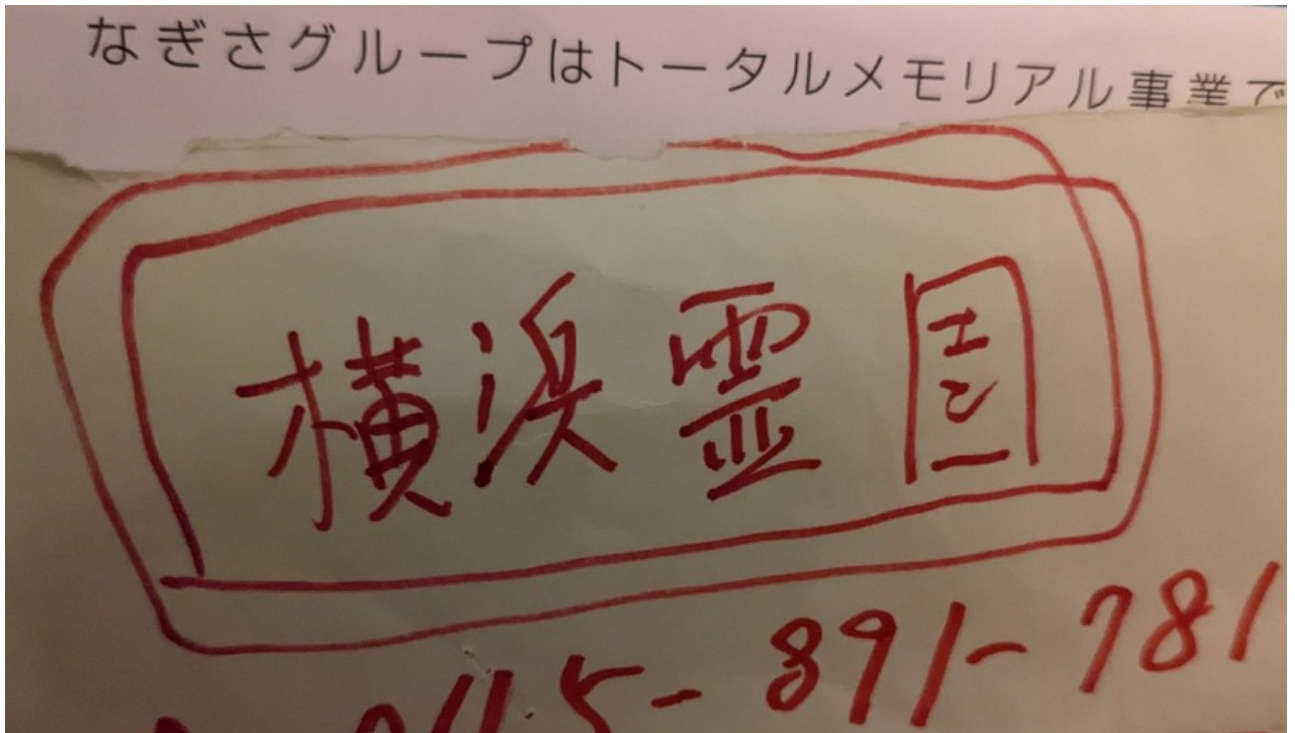 なぎさグループはトータルメモリアル事業で
横浜霊園
045-891-781